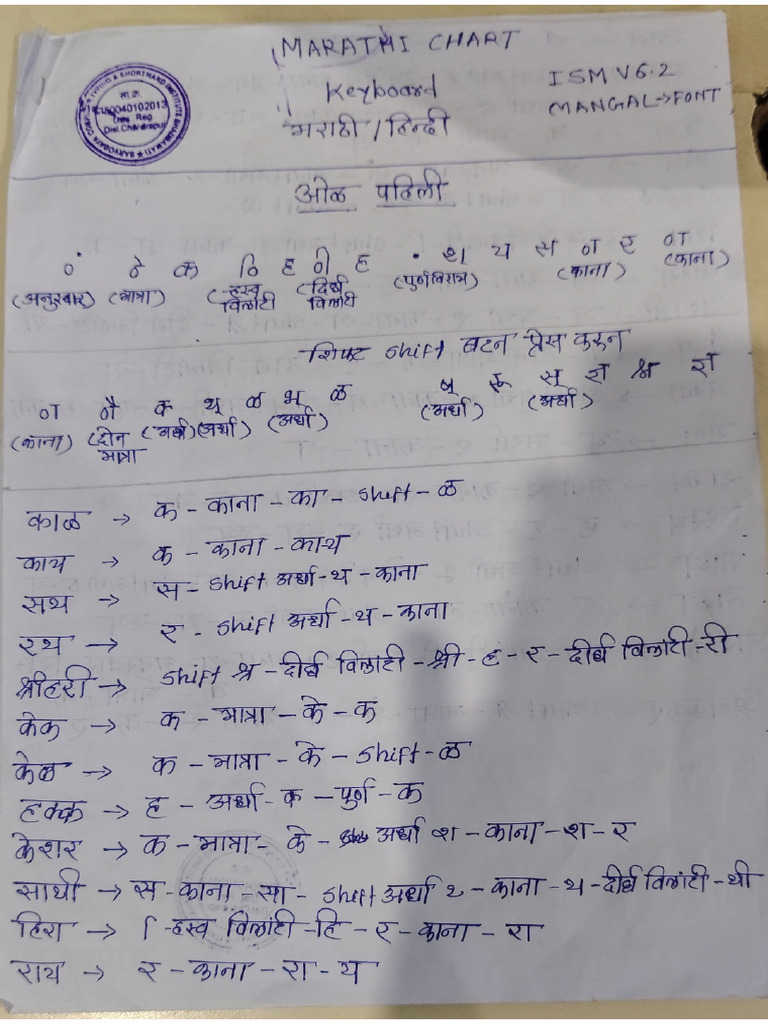 MARATHI CHART
Keyboard
ISM V6.2
मराठी / हिन्दी
MANGAL → FONT
मा.क्र.
EU0040102013
Reg
Dist.Chandrapur
ओळ पहिली
ं े क ि ह ी ह . श्‍ य स ा र ा
(अनुस्वार) (मात्रा) (ह्रस्व विलांटी) (दिर्घ विलांटी) (पुर्णविराम) (काना) (काना)
शिफ्ट shift बटन प्रेस करुन
ा ै क थ् ळ भ् ळ ष् रू स् ज्ञ श्र ज्ञ
(काना) (दोन मात्रा) (अर्धा) (अर्धा) (अर्धा) (अर्धा) (अर्धा)
काळ → क - काना - का - shift - ळ
काय → क - काना - काय
सथ → स - shift अर्धा - थ - काना
रथ → र - shift अर्धा - थ - काना
श्रीहरी → shift श्र - दीर्घ विलांटी - श्री - ह - र - दीर्घ विलांटी - री
केक → क - मात्रा - के - क
केळ → क - मात्रा - के - shift - ळ
हक्क → ह - अर्धा - क - पुर्ण - क
केशर → क - मात्रा - के - अर्धा श - काना - श - र
साथी → स - काना - सा - shift अर्धा थ - काना - थ - दीर्घ विलांटी - थी
हिरा → ि - ह्रस्व विलांटी - हि - र - काना - रा
राय → र - काना - रा - य